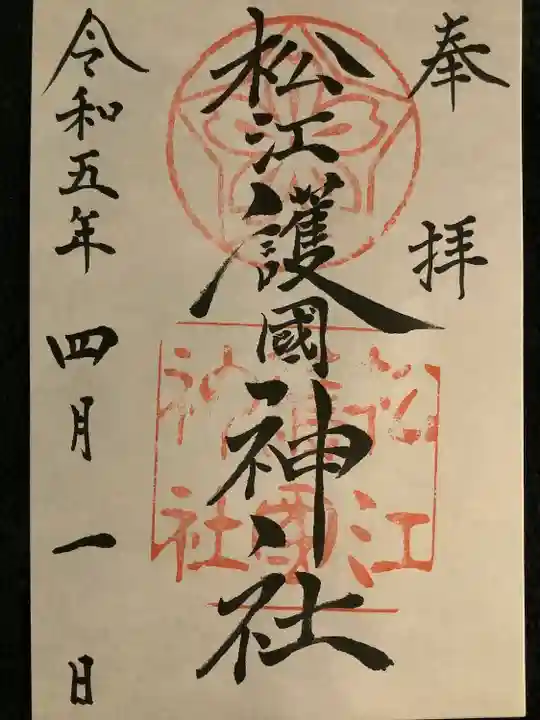 奉拝
松江護國神社
松江
護國
神社
令和五年四月一日